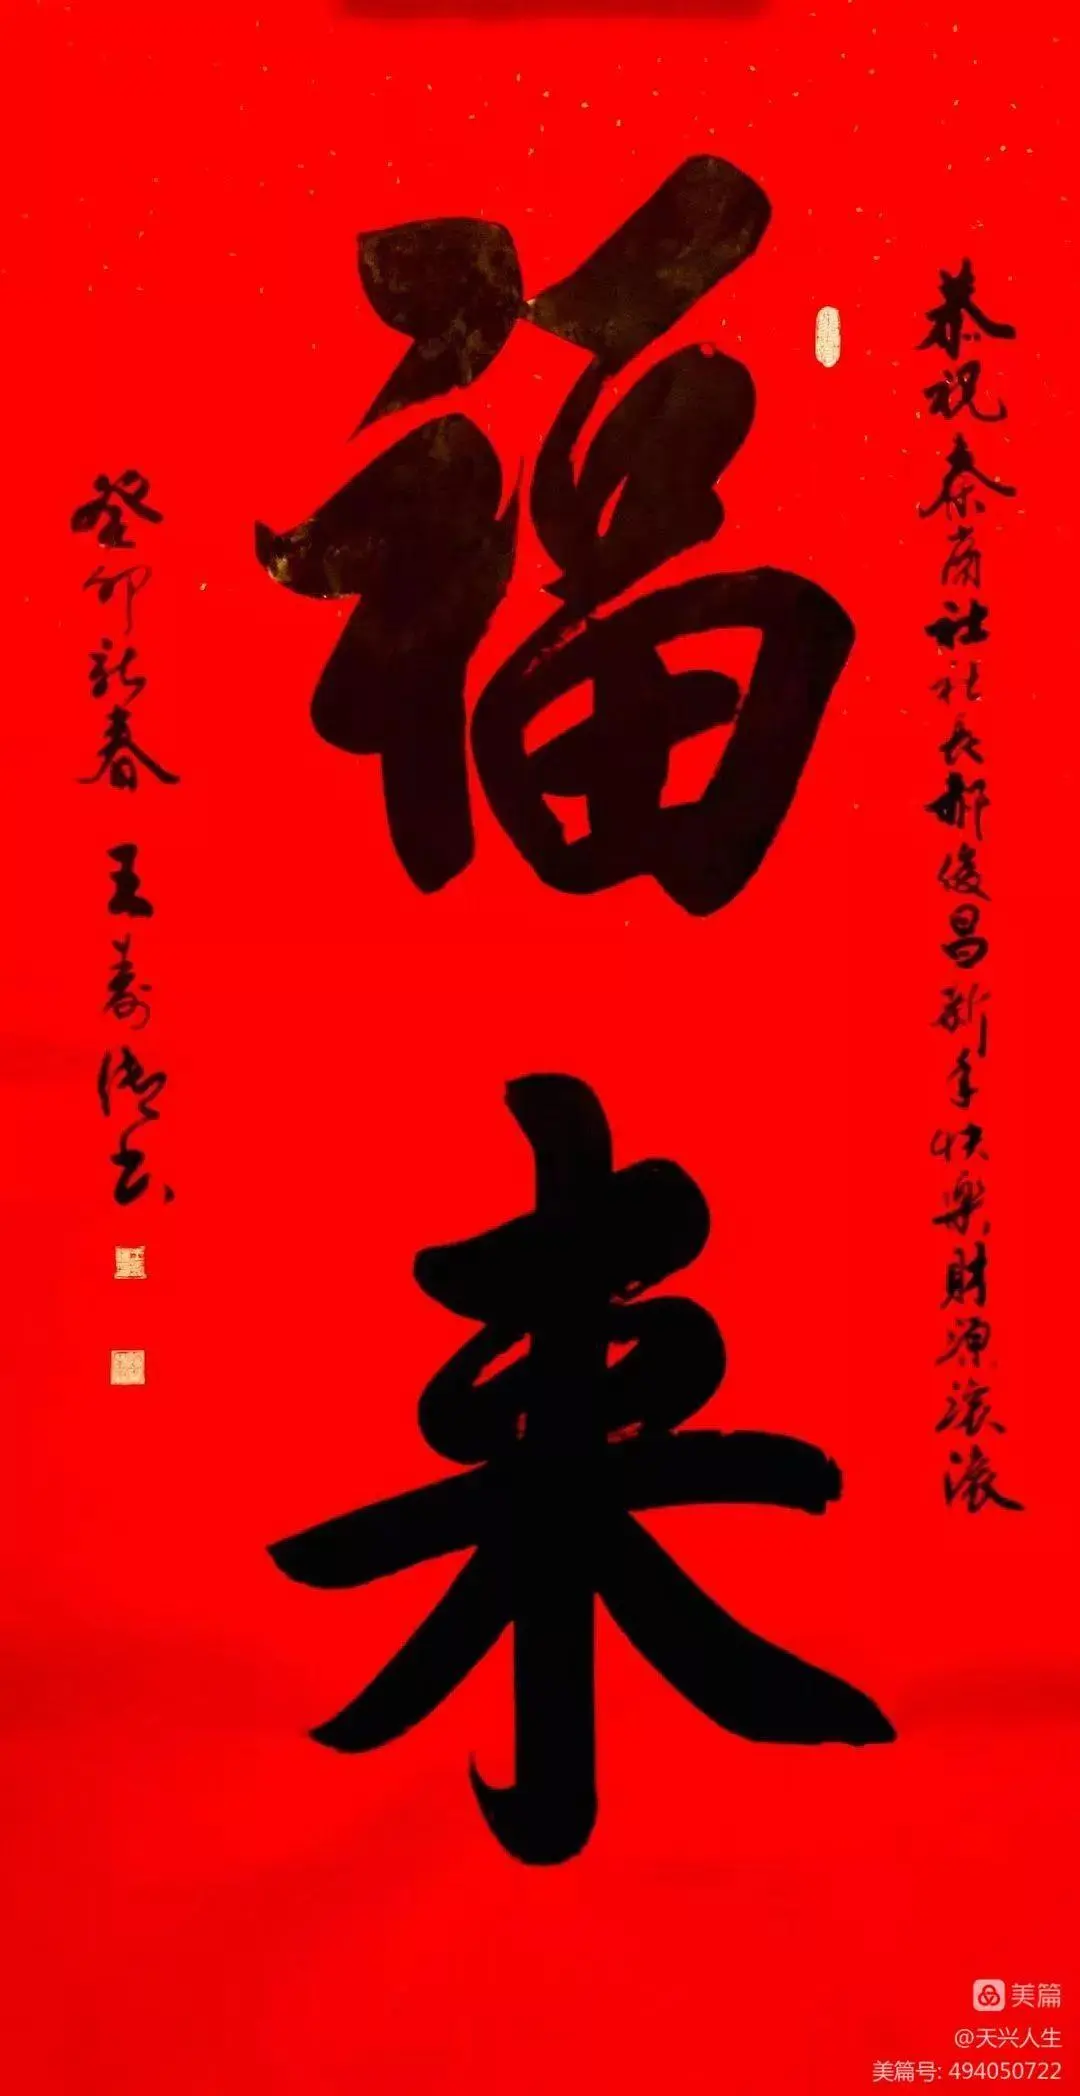 恭祝秦商社社长郝俊昌新年快樂財源滚滚
福来
癸卯新春 王寿
书
美篇
@天兴人生
美篇号: 494050722